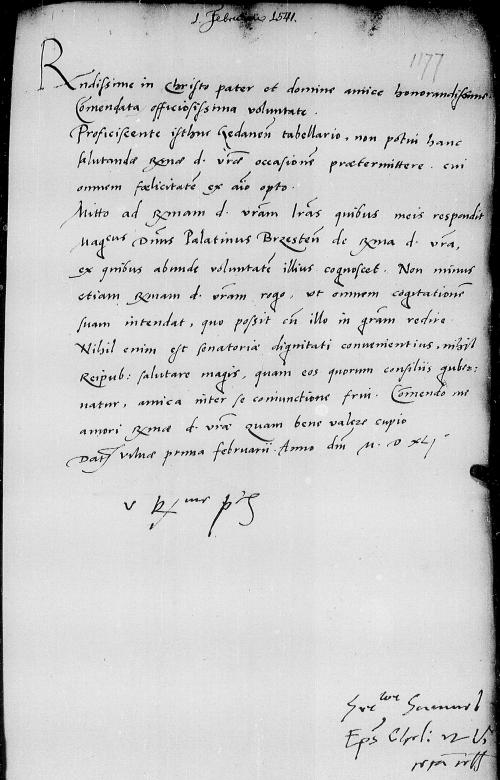 1. Februarii 1541.
1177
Rndissime in Christo pater et domine amice honorandissime
Comendata officiosissima voluntate.
Proficiscente isthuc Gedanen tabellario, non potui hanc
salutandae Rmae d. vrae occasionem praetermittere. cui
omnem foelicitatem ex aio opto.
Mitto ad Rmam d. vram lras quibus meis respondit
Magcus Dnus Palatinus Brzesten de Rma d. vra,
ex quibus abunde voluntate illius cognoscet. Non minus
etiam Rmam d. vram rogo, ut omnem cogitationem
suam intendat, quo possit cu illo in gram redire.
Nihil enim est senatoriae dignitati convenientius, nihil
Reipub: salutare magis, quam eos quorum consiliis guber:
natur, amica inter se coniunctione frui. Comendo me
amori Rmae d. vrae quam bene valere cupio
Dat vilnae prima februarii. Anno dni M. D XLI
Samuel
Eps